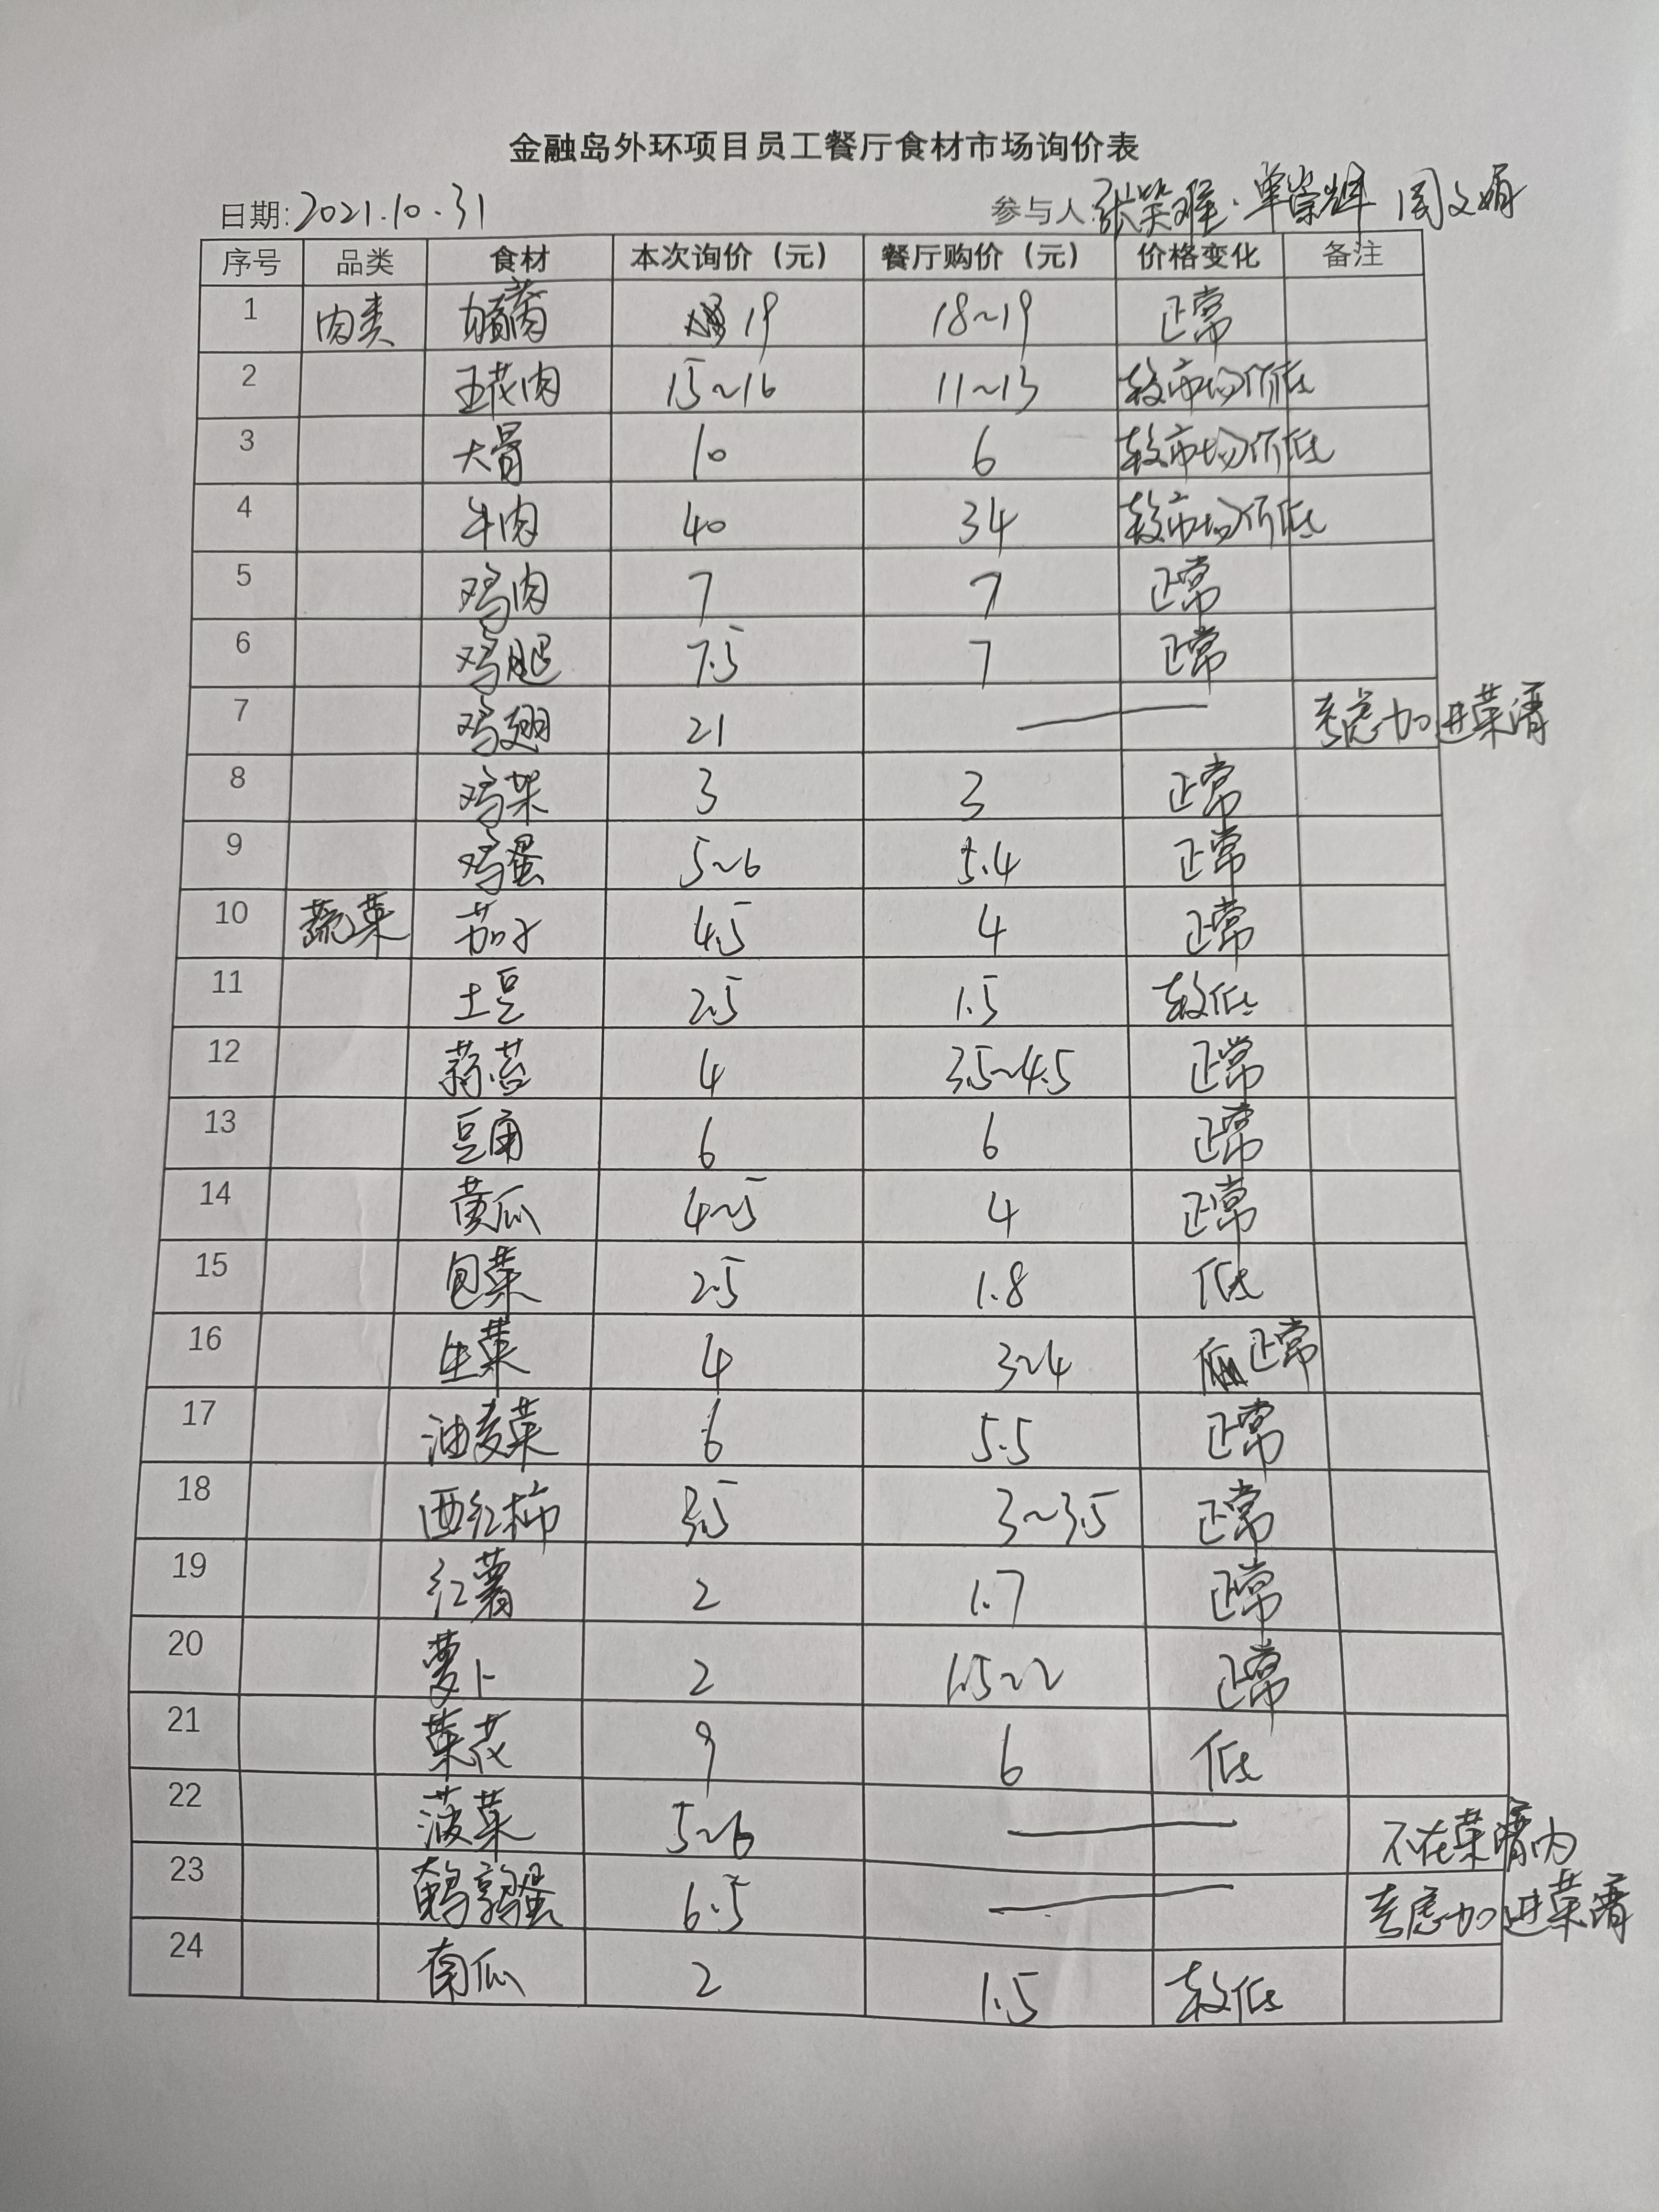 金融岛外环项目员工餐厅食材市场询价表
日期: 2021.10.31 参与人: 单崇辉 周文娟
序号 品类 食材 本次询价（元） 餐厅购价（元） 价格变化 备注
1 肉类 19 18~19 正常
2 五花肉 15~16 11~13 较市场价低
3 大骨 10 6 较市场价低
4 牛肉 40 34 较市场价低
5 鸡肉 7 7 正常
6 鸡腿 7.5 7 正常
7 鸡翅 21 — 考虑加进菜谱
8 鸡架 3 3 正常
9 鸡蛋 5~6 5.4 正常
10 蔬菜 茄子 4.5 4 正常
11 土豆 2.5 1.5 较低
12 蒜苔 4 3.5~4.5 正常
13 豆角 6 6 正常
14 黄瓜 4~5 4 正常
15 包菜 2.5 1.8 低
16 生菜 4 3~4 正常
17 油麦菜 6 5.5 正常
18 西红柿 3.5 3~3.5 正常
19 红薯 2 1.7 正常
20 萝卜 2 1.5~2 正常
21 菜花 9 6 低
22 菠菜 5~6 — 不在菜谱内
23 鹌鹑蛋 6.5 — 考虑加进菜谱
24 南瓜 2 1.5 较低